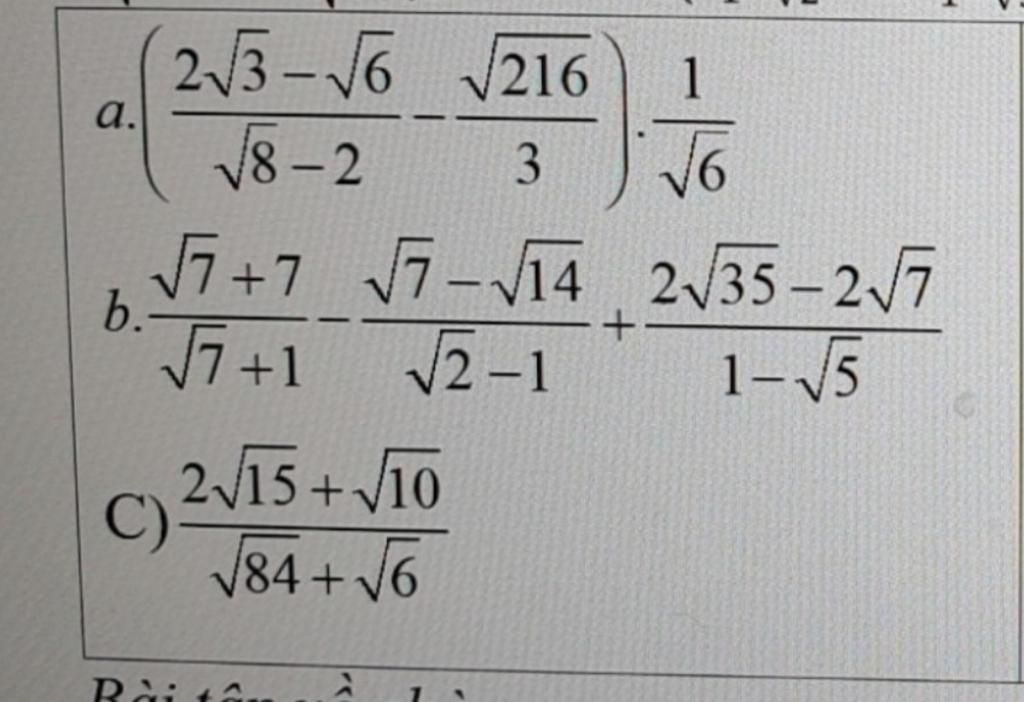 a. \left( \frac{2\sqrt{3}-\sqrt{6}}{\sqrt{8}-2} - \frac{\sqrt{216}}{3} \right) . \frac{1}{\sqrt{6}}
b. \frac{\sqrt{7}+7}{\sqrt{7}+1} - \frac{\sqrt{7}-\sqrt{14}}{\sqrt{2}-1} + \frac{2\sqrt{35}-2\sqrt{7}}{1-\sqrt{5}}
C) \frac{2\sqrt{15}+\sqrt{10}}{\sqrt{84}+\sqrt{6}}